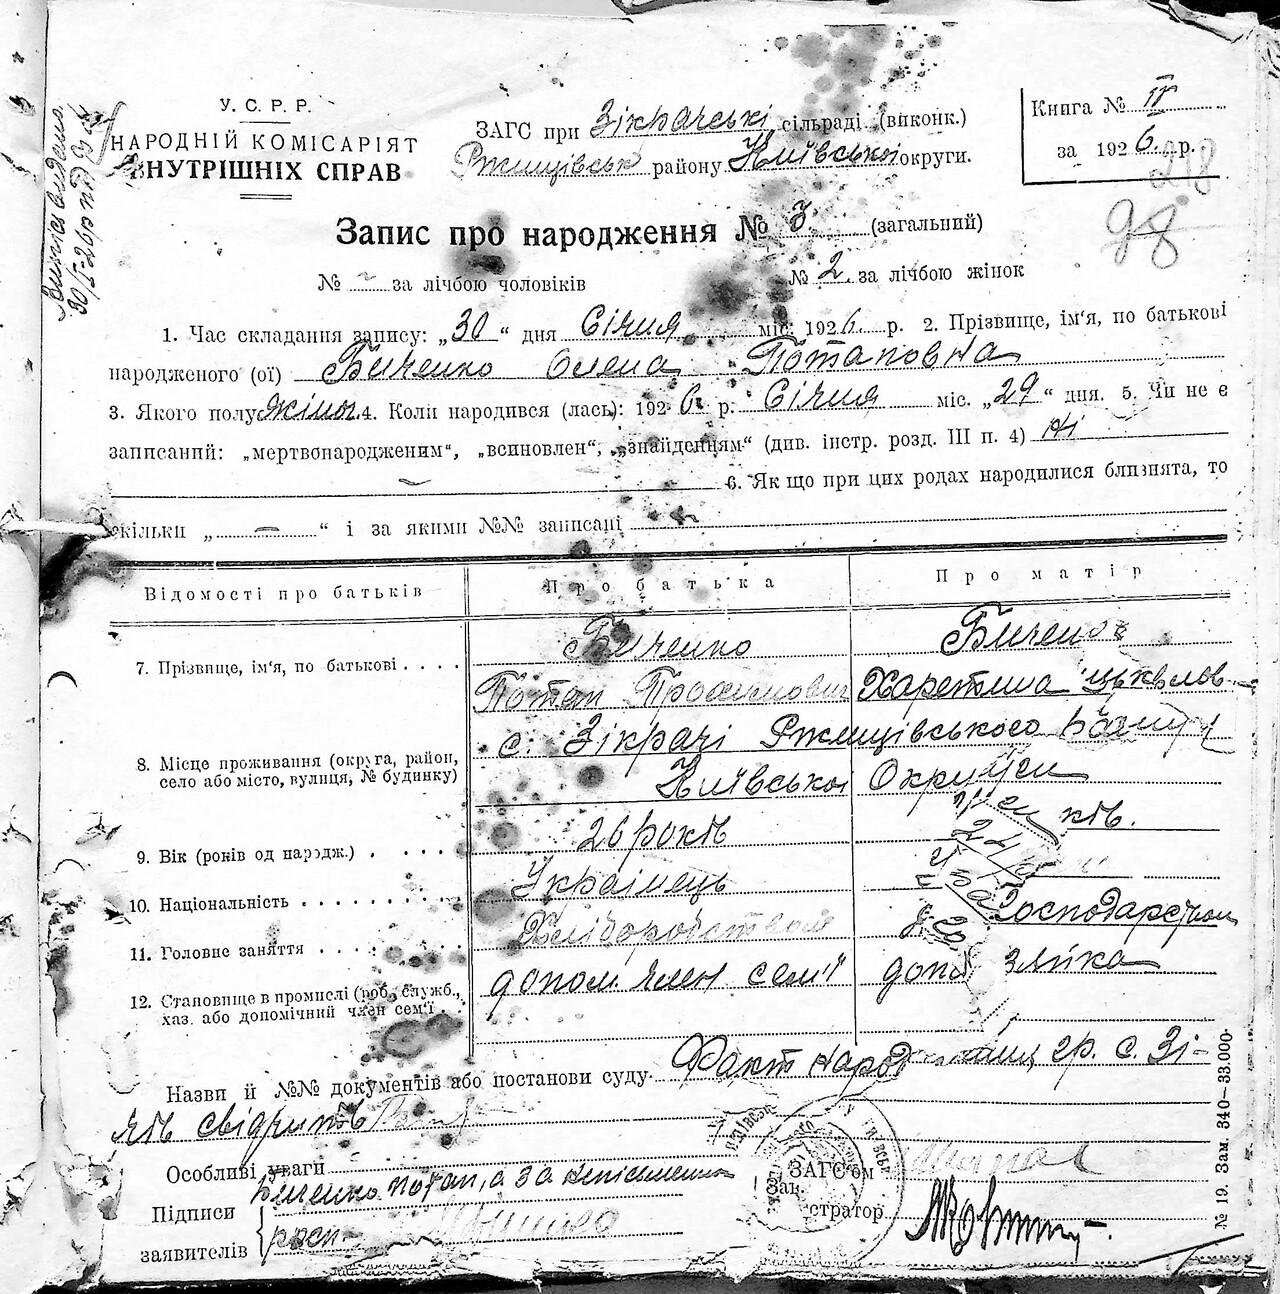 У. С. Р. Р.
НАРОДНІЙ КОМІСАРІЯТ
ВНУТРІШНІХ СПРАВ
ЗАГС при Зікрачські сільраді (виконк.)
Ржищівськ району Київської округи.
Книга № IV
за 1926 р.
218
98
Запис про народження № 3 (загальний)
№ за лічбою чоловіків № 2 за лічбою жінок
1. Час складання запису: „30“ дня Січня міс. 1926 р. 2. Прізвище, ім'я, по батькові
народженого (ої) Биченко Олена Потаповна
3. Якого полу жіноч. 4. Коли народився (лась): 1926 р. Січня міс. „29“ дня. 5. Чи не є
записаний: „мертвонародженим“, „всиновлен“, „знайденцям“ (див. інстр. розд. III п. 4) ні
6. Як що при цих родах народилися близнята, то
скільки „ — “ і за якими №№ записані
Відомості про батьків Про батька Про матір
7. Прізвище, ім'я, по батькові Биченко Биченко
Потап
8. Місце проживання (округа, район, село або місто, вулиця, № будинку) с. Зікрачі Ржищівського Району
Київської Округи
9. Вік (років од нарздж.) 26 років
10. Національність Українець
11. Головне заняття Хліборобством Господарством
12. Становище в промислі (роб., служб., хаз. або допомічний член сем'ї допом. член сем'ї
Назви й №№ документів або постанови суду Факт народ гр. с. Зі-
Особливі уваги
Підписи Биченко Потап, а за неписьменно
заявителів роспи
ЗАГС'ом
Зав.
стратор
№ 19. Зам. 340—33.000